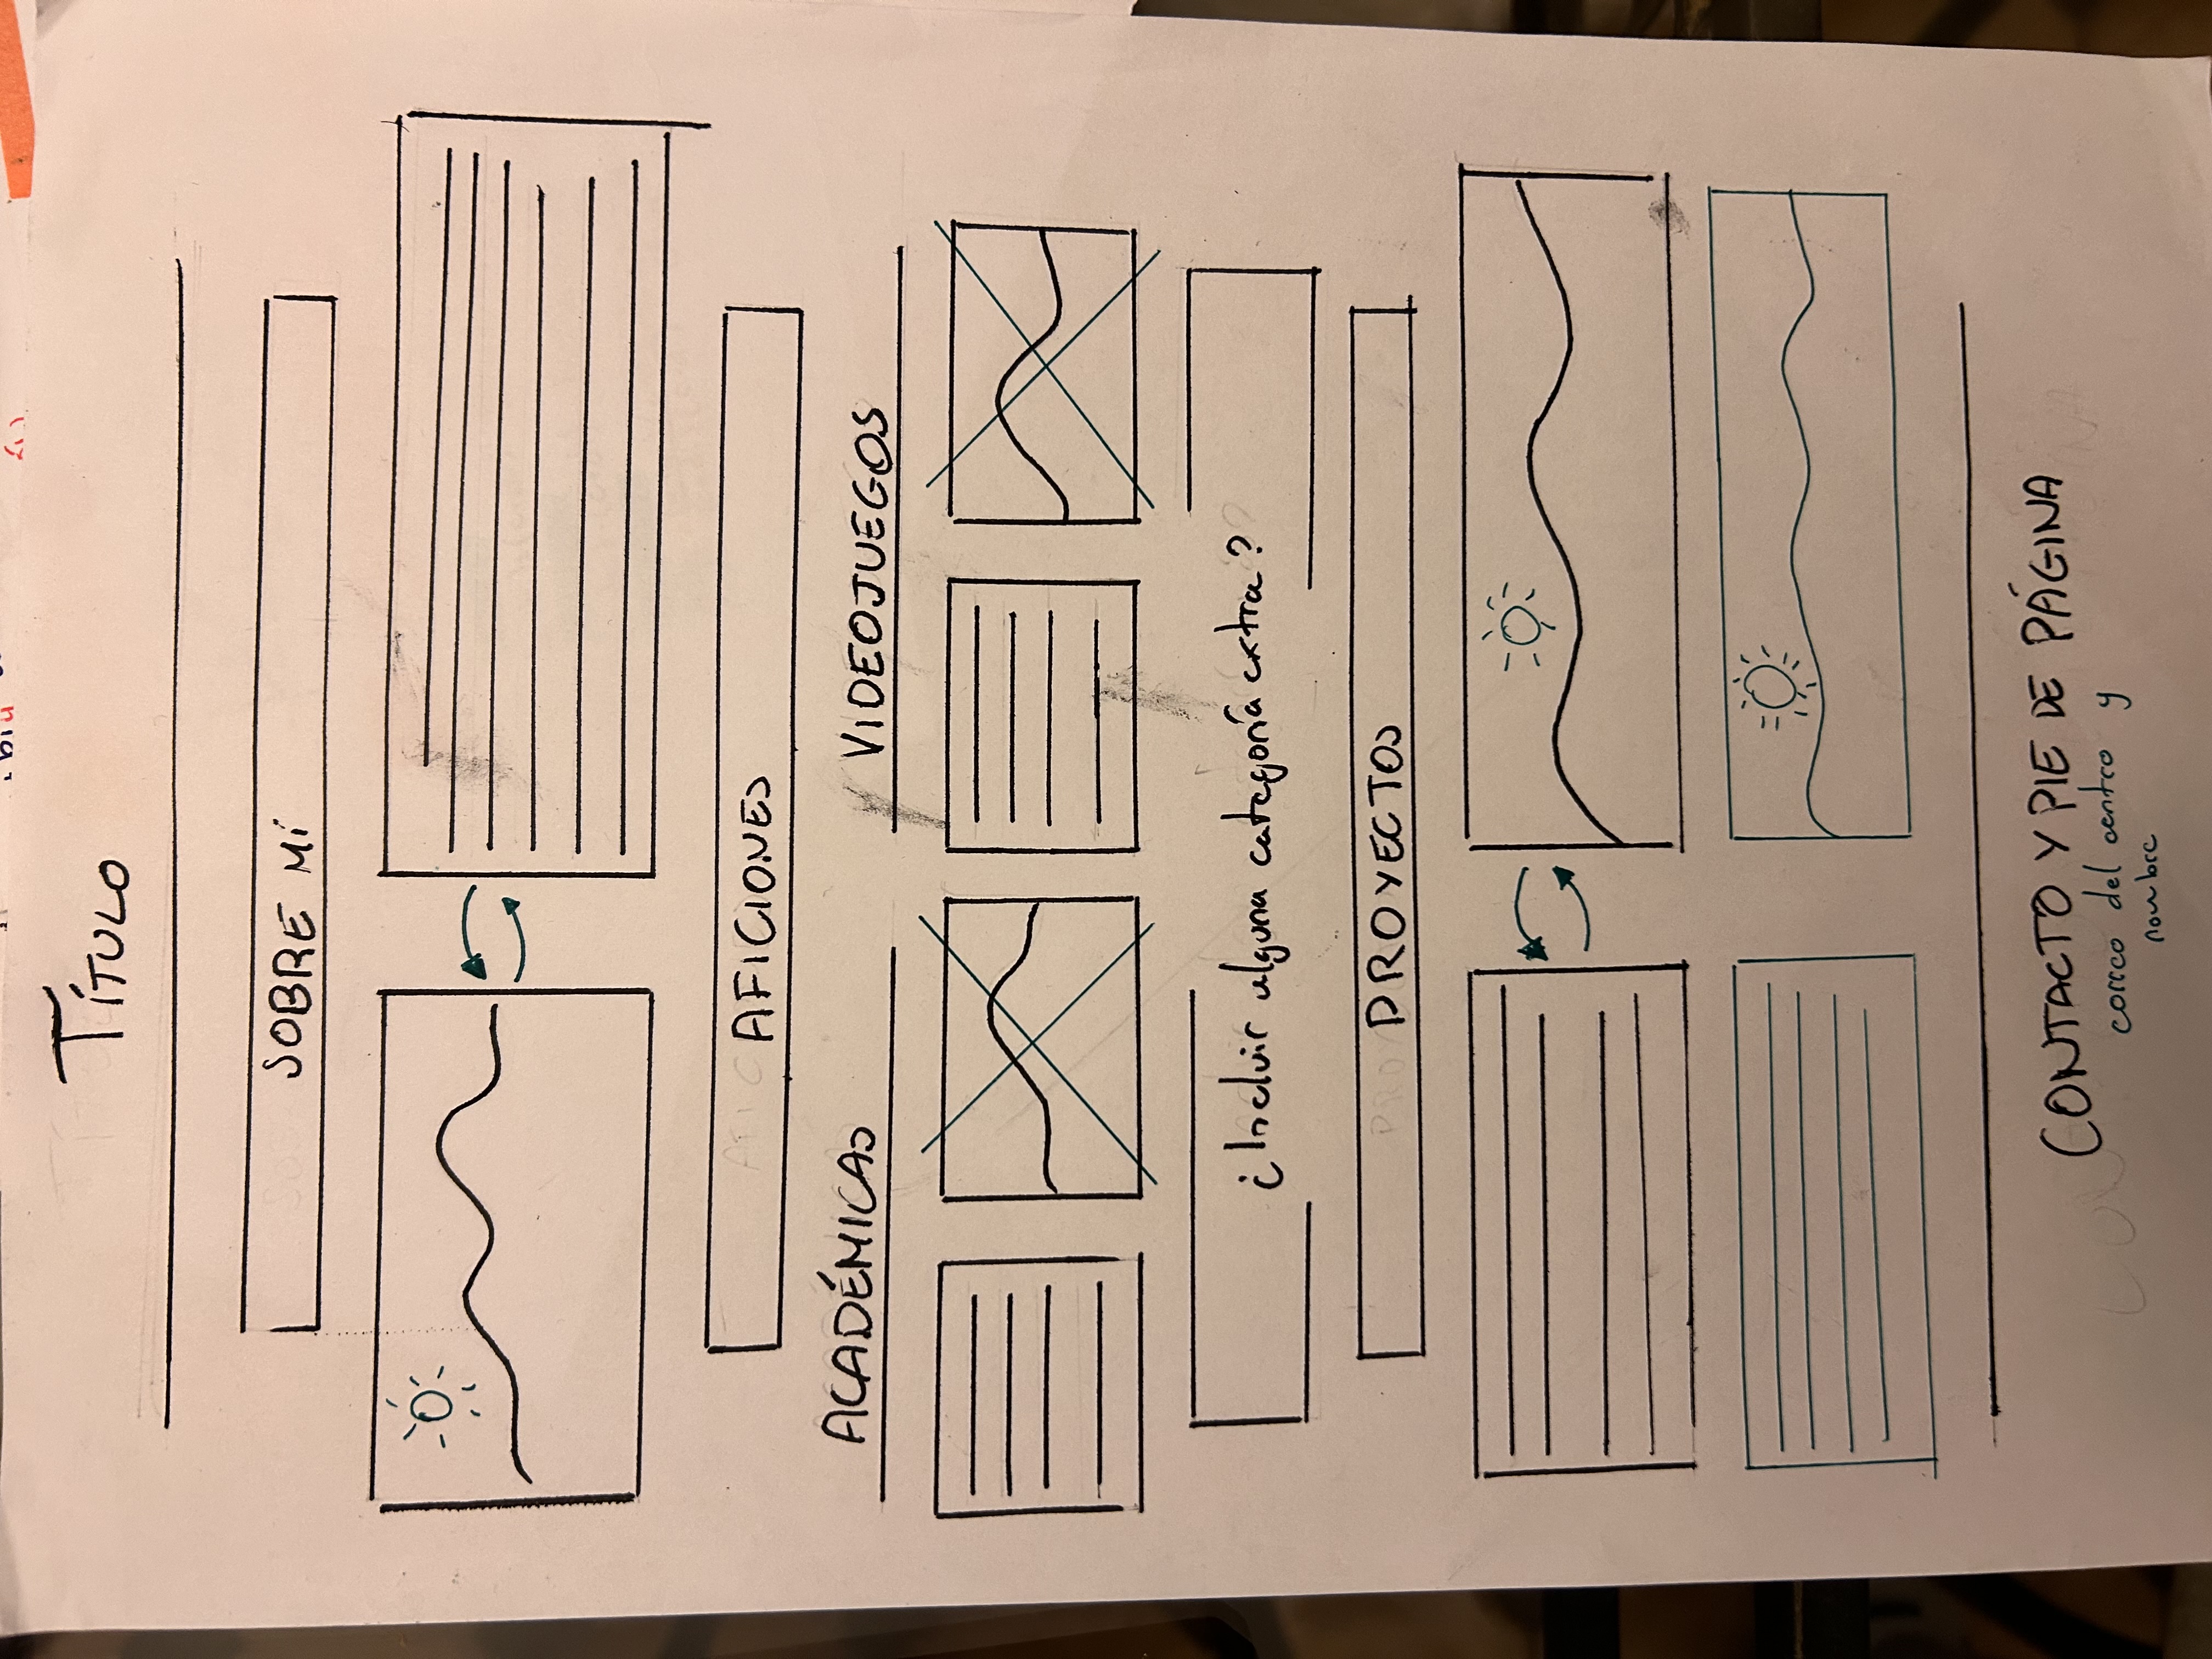 TÍTULO
SOBRE MÍ
AFICIONES
ACADÉMICAS
VIDEOJUEGOS
¿Incluir alguna categoría extra?
PROYECTOS
CONTACTO Y PIE DE PÁGINA
correo del centro y
nombre